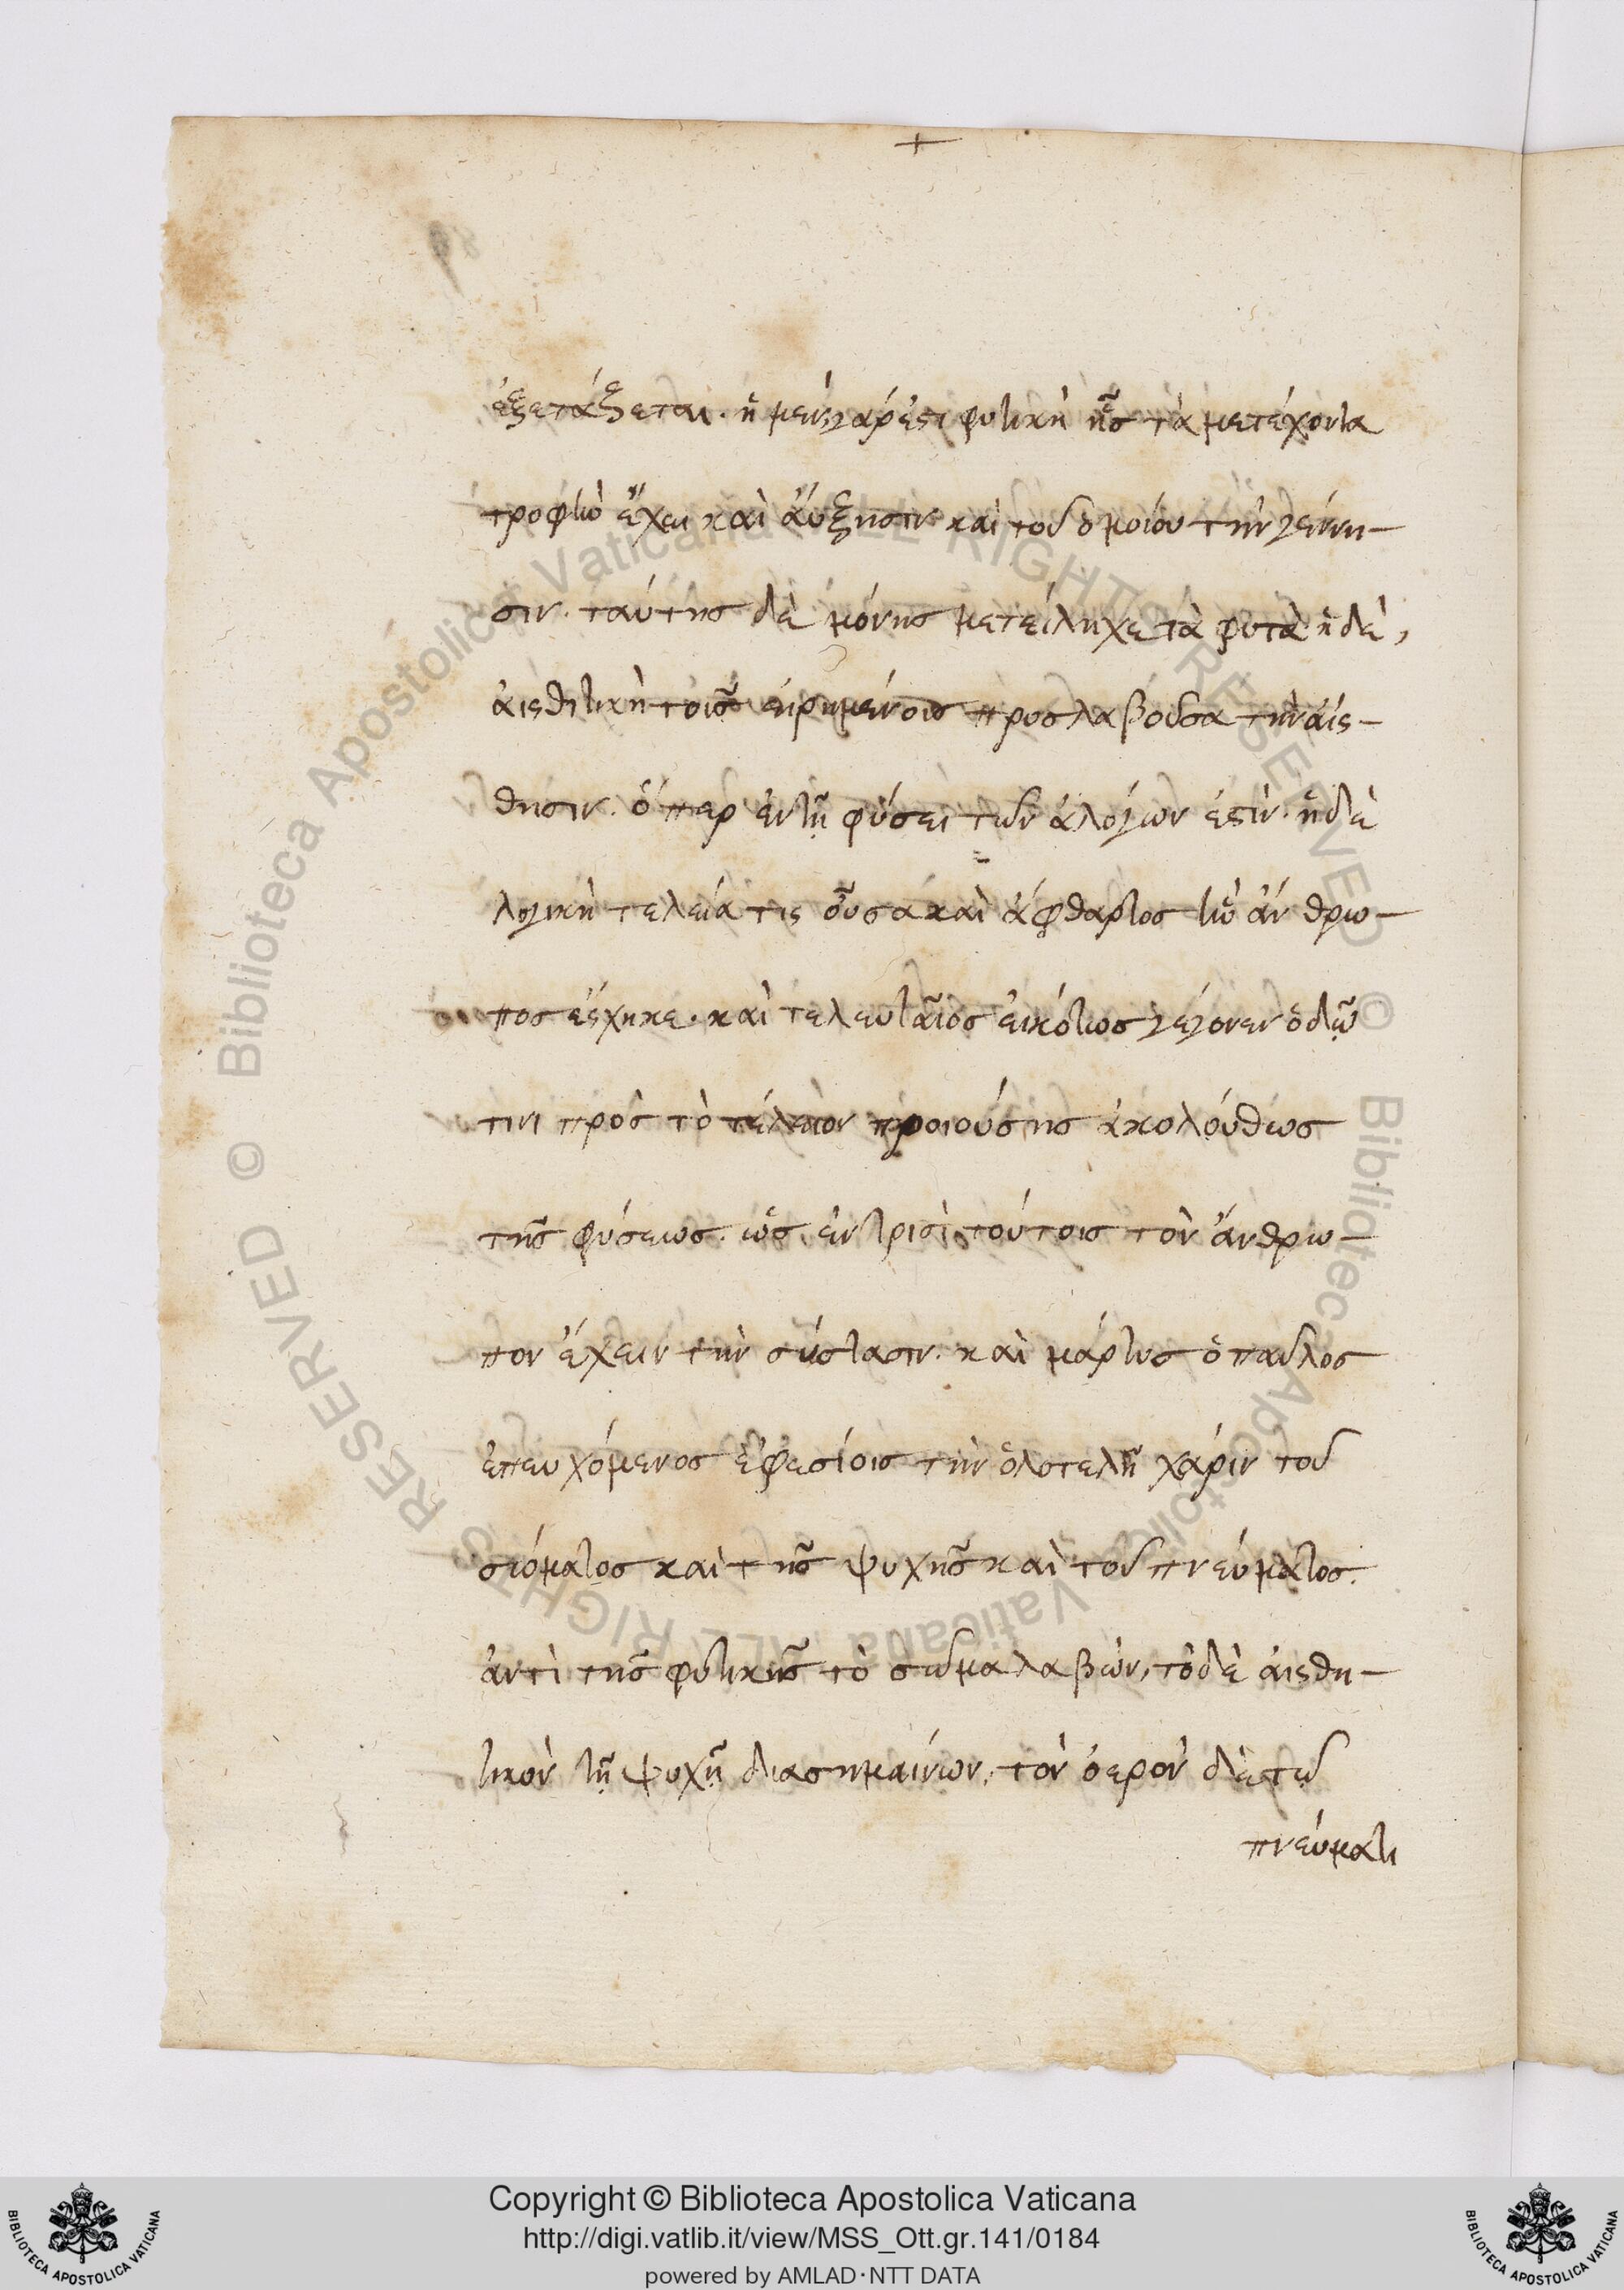 +
ἐξετάζεται. ἡ μὲν γάρ ἐστι φυτικὴ ἧς τὰ μετέχοντα
τροφὴν ἔχει καὶ ἄυξησιν καὶ τοῦ ὁμοίου τὴν γέννη-
σιν. ταύτης δὲ μόνης μετείληχε τὰ φυτὰ ἡ δὲ,
ἀισθητικὴ τοῖς εἰρημένοις προσλαβοῦσα τὴν ἄισ-
θησιν. ὅπερ ἐν τῇ φύσει τῶν ἀλόγων ἐστίν. ἡ δὲ
λογικὴ τελεία τις οὖσα καὶ ἄφθαρτος ἣν ἄνθρω-
πος ἔσχηκε. καὶ τελευταῖος εἰκότως γέγονεν ὁδῷ
τινι πρὸς τὸ τέλειον προιούσης ἀκολούθως
τῆς φύσεως. ὡς ἐν τρισὶ τούτοις τὸν ἄνθρω-
πον ἔχειν τὴν σύστασιν. καὶ μάρτυς ὁ παῦλος
ἐπευχόμενος ἐφεσίοις τὴν ὁλοτελῆ χάριν τοῦ
σώματος καὶ τῆς ψυχῆς καὶ τοῦ πνεύματος.
ἀντὶ τῆς φυτικῆς τὸ σῶμα λαβών, τὸ δὲ ἀισθη-
τικὸν τῇ ψυχῇ διασημαίνων, τὸν ὀερὸν δὲ τῷ
πνεύματι
Copyright © Biblioteca Apostolica Vaticana
http://digi.vatlib.it/view/MSS_Ott.gr.141/0184
powered by AMLAD·NTT DATA
BIBLIOTECA APOSTOLICA VATICANA
BIBLIOTECA APOSTOLICA VATICANA
© Biblioteca Apostolica Vaticana ALL RIGHTS RESERVED © Biblioteca Apostolica Vaticana ALL RIGHTS RESERVED